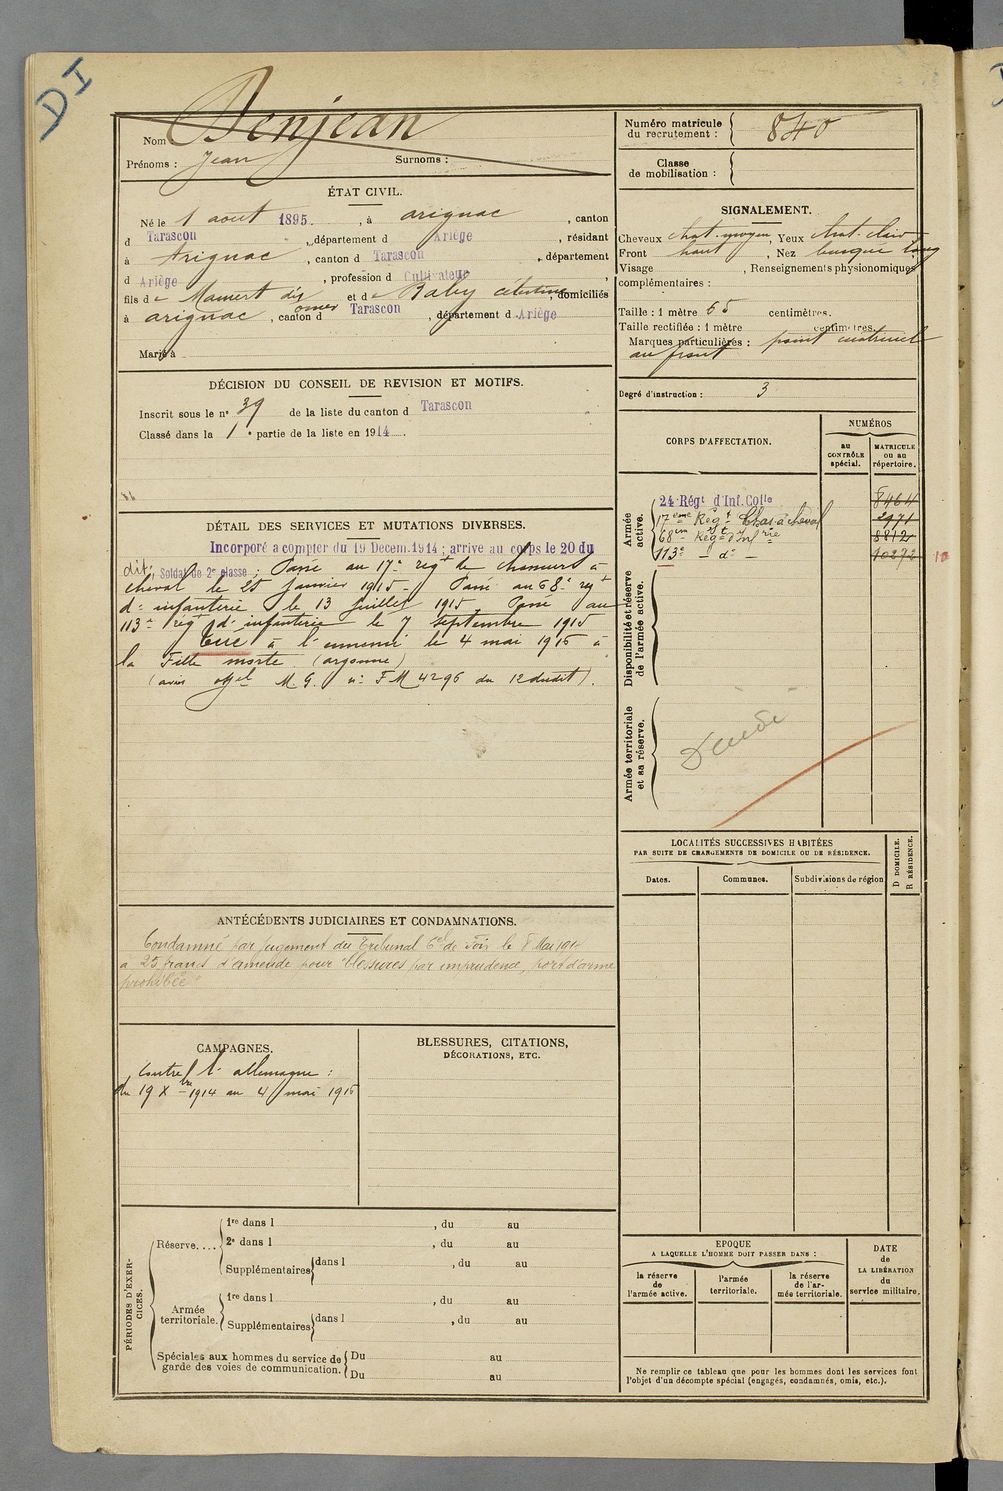 DI
Nom Denjean
Prénoms : Jean Surnoms :
Numéro matricule
du recrutement : 840
Classe
de mobilisation :
ÉTAT CIVIL.
Né le 1 aout 1895. , à arignac , canton
d Tarascon , département d Ariège , résidant
à Arignac , canton d Tarascon , département
d Ariège , profession d Cultivateur ,
fils de Mamert dit omer et de Baby célestine, domiciliés
à arignac , canton d Tarascon , département d Ariège
Marié à
SIGNALEMENT.
Cheveux chat. moyen, Yeux chat. clair
Front haut , Nez busqué long
Visage , Renseignements physionomiques
complémentaires :
Taille : 1 mètre 65 centimètres.
Taille rectifiée : 1 mètre centimètres.
Marques particulières : point cicatriciel
au front
Degré d'instruction : 3
DÉCISION DU CONSEIL DE REVISION ET MOTIFS.
Inscrit sous le nº 39 de la liste du canton d Tarascon
Classé dans la 1 e partie de la liste en 1914
CORPS D'AFFECTATION.
NUMÉROS
au
CONTRÔLE
spécial.
MATRICULE
ou au
répertoire.
Armée
active.
24 Régt d'Inf. Colle 8464
17eme Regt Chas. à cheval 2971
68em Regt d'Infrie 8812
113e - do - 10272
Disponibilité et réserve
de l'armée active.
Armée territoriale
et sa réserve.
Décédé
DÉTAIL DES SERVICES ET MUTATIONS DIVERSES.
Incorporé a compter du 19 Decem.1914 ; arrive au corps le 20 du
dit; Soldat de 2e classe ; Passé au 17e regt de chasseurs à
cheval le 25 Janvier 1915. Passé au 68e regt
d'infanterie le 13 juillet 1915. Passé au
113e regt d'infanterie le 7 septembre 1915
Tué à l'ennemi le 4 mai 1916 à
la Fille morte (argonne)
(avis offel M. G. no FM 4296 du 12 dudit).
LOCALITÉS SUCCESSIVES HABITÉES
PAR SUITE DE CHANGEMENTS DE DOMICILE OU DE RÉSIDENCE.
Dates. Communes. Subdivisions de région
D DOMICILE.
R RÉSIDENCE.
ANTÉCÉDENTS JUDICIAIRES ET CONDAMNATIONS.
Condamné par jugement du Tribunal Cel de Foix le 8 Mai 1914
a 25 francs d'amende pour "blessures par imprudence, port d'arme
prohibée"
CAMPAGNES.
Contre l'allemagne :
du 19 Xbre 1914 au 4 mai 1916
BLESSURES, CITATIONS,
DÉCORATIONS, ETC.
PÉRIODES D'EXER-
CICES.
Réserve....
1re dans l , du au
2e dans l , du au
Supplémentaires dans l , du au
Armée
territoriale.
1re dans l , du au
Supplémentaires dans l , du au
Spéciales aux hommes du service de
garde des voies de communication.
Du au
Du au
EPOQUE
A LAQUELLE L'HOMME DOIT PASSER DANS :
la réserve
de
l'armée active.
l'armée
territoriale.
la réserve
de l'ar-
mée territoriale.
DATE
de
LA LIBÉRATION
du
service militaire.
Ne remplir ce tableau que pour les hommes dont les services font
l'objet d'un décompte spécial (engagés, condamnés, omis, etc.).